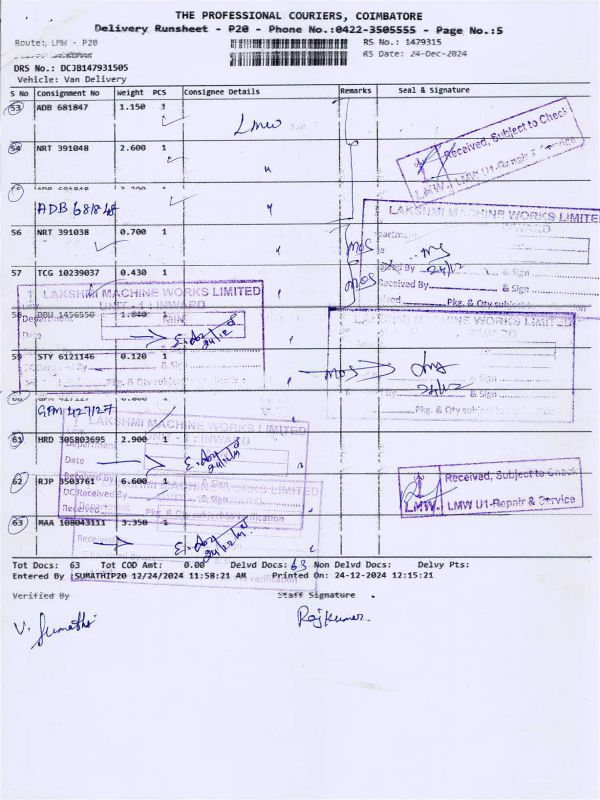 THE PROFESSIONAL COURIERS, COIMBATORE
Delivery Runsheet - P20 - Phone No.:0422-3505555 - Page No.:5
Route: LMW - P20
RS No.: 1479315
RS Date: 24-Dec-2024
DRS No.: DCJB147931505
Vehicle: Van Delivery
S No Consignment No Weight PCS Consignee Details Remarks Seal & Signature
53 ADB 681847 1.150 1
LMW
54 NRT 391048 2.600 1
Received, Subject to Check
LMW. LMW U1-Repair & Service
ADB 681848
56 NRT 391038 0.700 1
LAKSHMI MACHINE WORKS LIMITED
INWARD
MOS
24/12
& Sign
57 TCG 10239037 0.430 1
MOS
Received By & Sign
Pkg. & Qty subject
LAKSHMI MACHINE WORKS LIMITED
UNIT - 1 : INWARD
58 DBU 1456550 1.840 1
Department
Date
24/12
LAKSHMI MACHINE WORKS LIMITED
59 STY 6121146 0.120 1
& Sign
MOS
24/12
& Sign
& Sign
Pkg. & Qty subject to
GPM 427127
61 HRD 305803695 2.900 1
UNIT - 1 : INWARD
Department
Date
24/12
62 RJP 3503761 6.600 1
Received By & Sign
Received, Subject to Check
LMW. LMW U1-Repair & Service
DC Received By & Sign
Pkg. & Qty subject to verification
63 MAA 108043111 3.350 1
Tot Docs: 63 Tot COD Amt: 0.00 Delvd Docs: 63 Non Delvd Docs: Delvy Pts:
Entered By :SUMATHIP20 12/24/2024 11:58:21 AM Printed On: 24-12-2024 12:15:21
Verified By Staff Signature
V. Sumathi Rajkumar